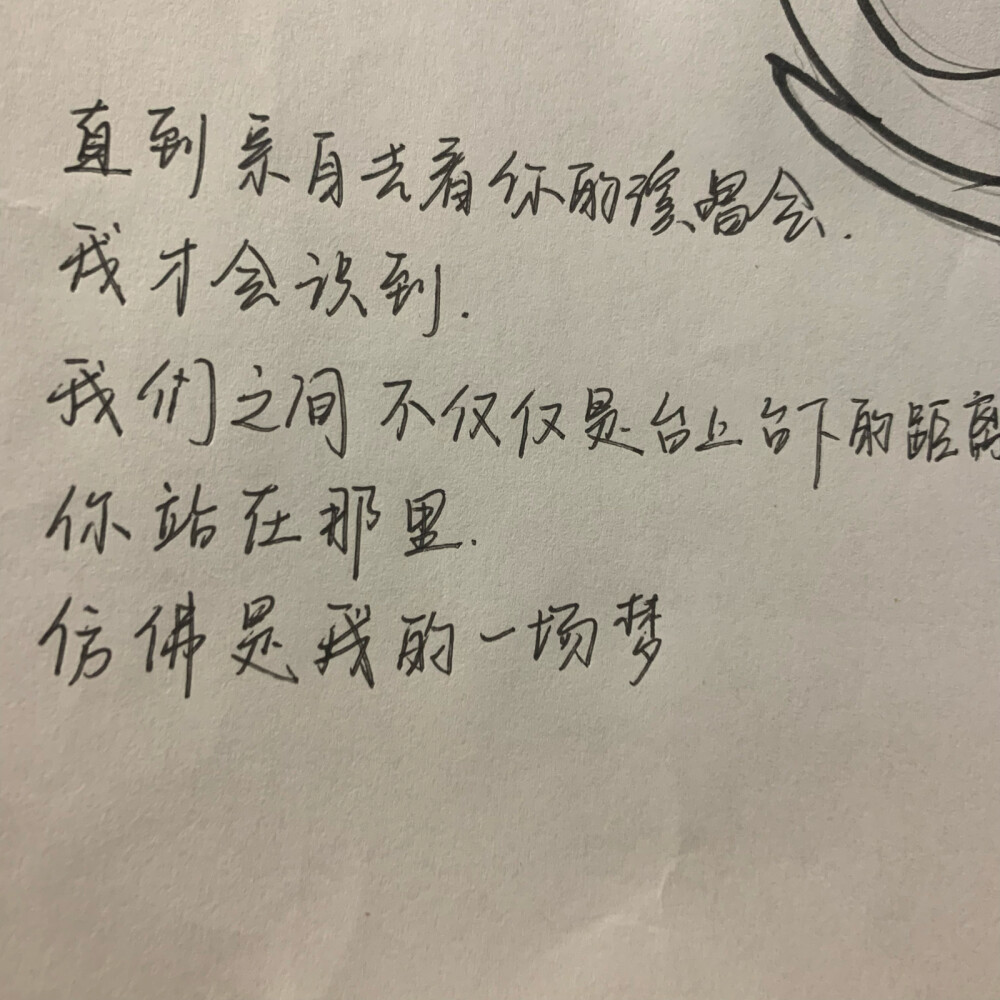 直到亲自去看你的演唱会.
我才会识到.
我们之间不仅仅是台上台下的距离
你站在那里.
仿佛是我的一场梦